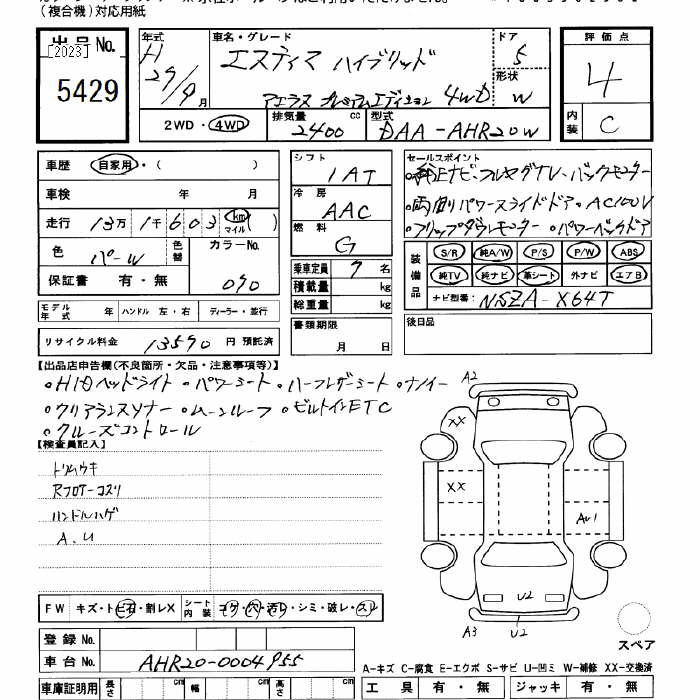 (複合機)対応用紙
出品No. 年式 車名・グレード ドア 評価点
[2023] H エスティマ ハイブリッド 5 4
5429 29/9月 アエラス プレミアムエディション 4WD 形状 W
2WD・4WD 排気量 2400 cc 型式 DAA-AHR20W 内装 C
車歴 自家用・( ) シフト IAT セールスポイント
車検 年 月 冷房 AAC 純正ナビ・フルセグTV・バックモニター
走行 13万 1千603 km マイル ( ) 燃料 G 両側パワースライドドア・AC100V
色 パール 色替 カラーNo. 070 フリップダウンモニター・パワーバックドア
保証書 有・無 乗車定員 7 名 装備品 S/R 純A/W P/S P/W ABS
積載量 kg 純TV 純ナビ 革シート 外ナビ エアB
モデル年式 年 ハンドル 左・右 ディーラー・並行 総重量 kg ナビ型番: NSZA-X64T
リサイクル料金 13590 円 預託済 書類期限 月 日 後日品
【出品店申告欄(不良箇所・欠品・注意事項等)】
・HIDヘッドライト ・パワーシート ・ハーフレザーシート ・ナノイー
・クリアランスソナー ・ムーンルーフ ・ビルトインETC
・クルーズコントロール
【検査員記入】
トリムウキ
Rフロアーコスリ
ハンドルハゲ
A、U
A2
XX
XX
AU1
U2
A3 U2
スペア
FW キズ・トビ石・割レX シート内装 コゲ・穴・汚レ・シミ・破レ・スレ
登録No.
車台No. AHR20-0004955
A-キズ C-腐食 E-エクボ S-サビ U-凹ミ W-補修 XX-交換済
車庫証明用 長さ cm 幅 cm 高さ cm 工具 有・無 ジャッキ 有・無